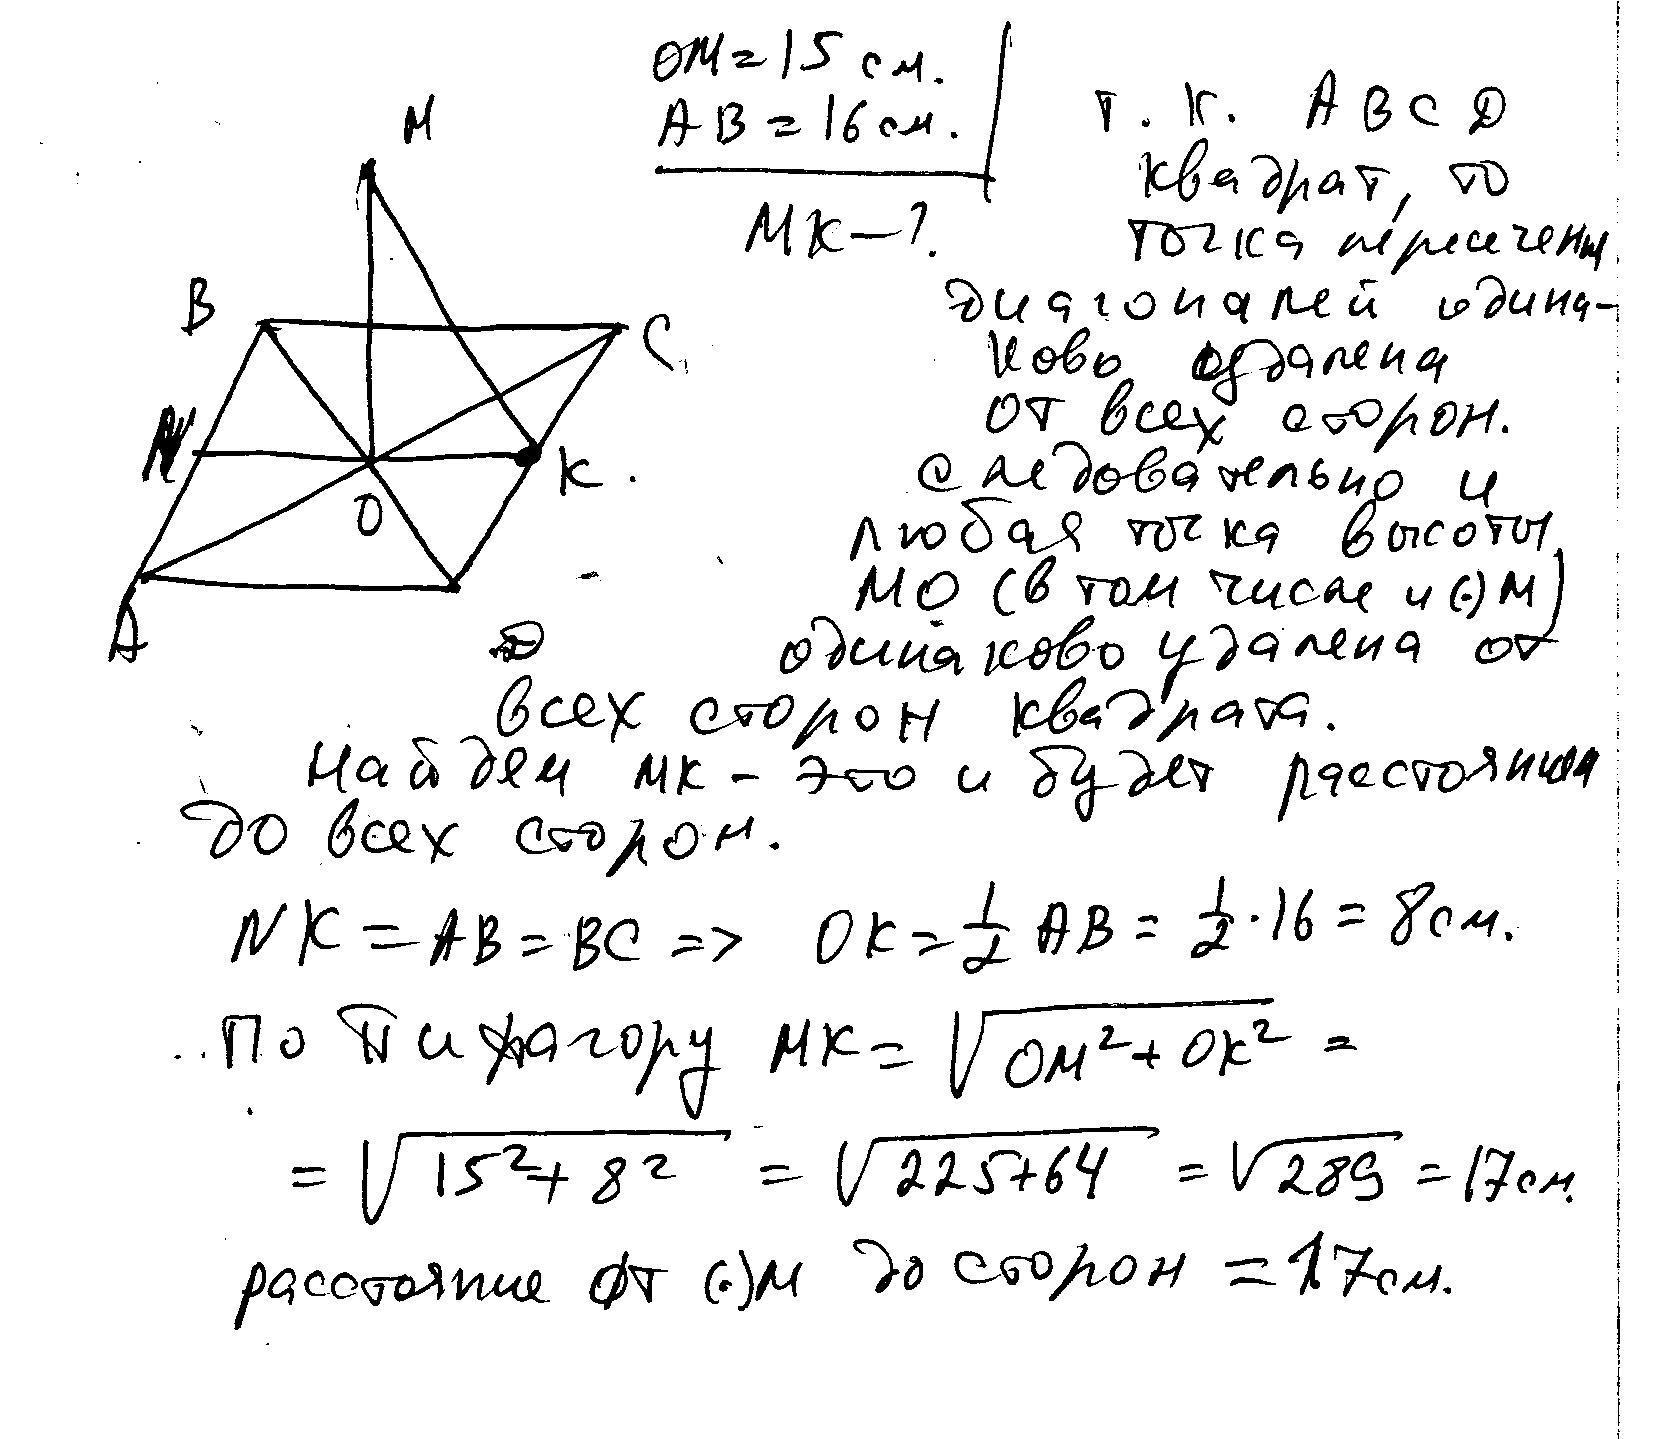 OM = 15 см.
AB = 16 см.
MK – ?.
M
B
C
N
K.
O
A
D
т. к. ABCD
квадрат, то
точка пересечения
диагоналей одина-
ково удалена
от всех сторон.
следовательно и
любая точка высоты
MO (в том числе и (·) M)
одинаково удалена от
всех сторон квадрата.
Найдем MK – это и будет расстояния
до всех сторон.
NK = AB = BC => OK = 1/2 AB = 1/2 · 16 = 8 см.
По Пифагору MK = √(OM² + OK²) =
= √(15² + 8²) = √(225 + 64) = √289 = 17 см.
расстояние от (·) M до сторон = 17 см.